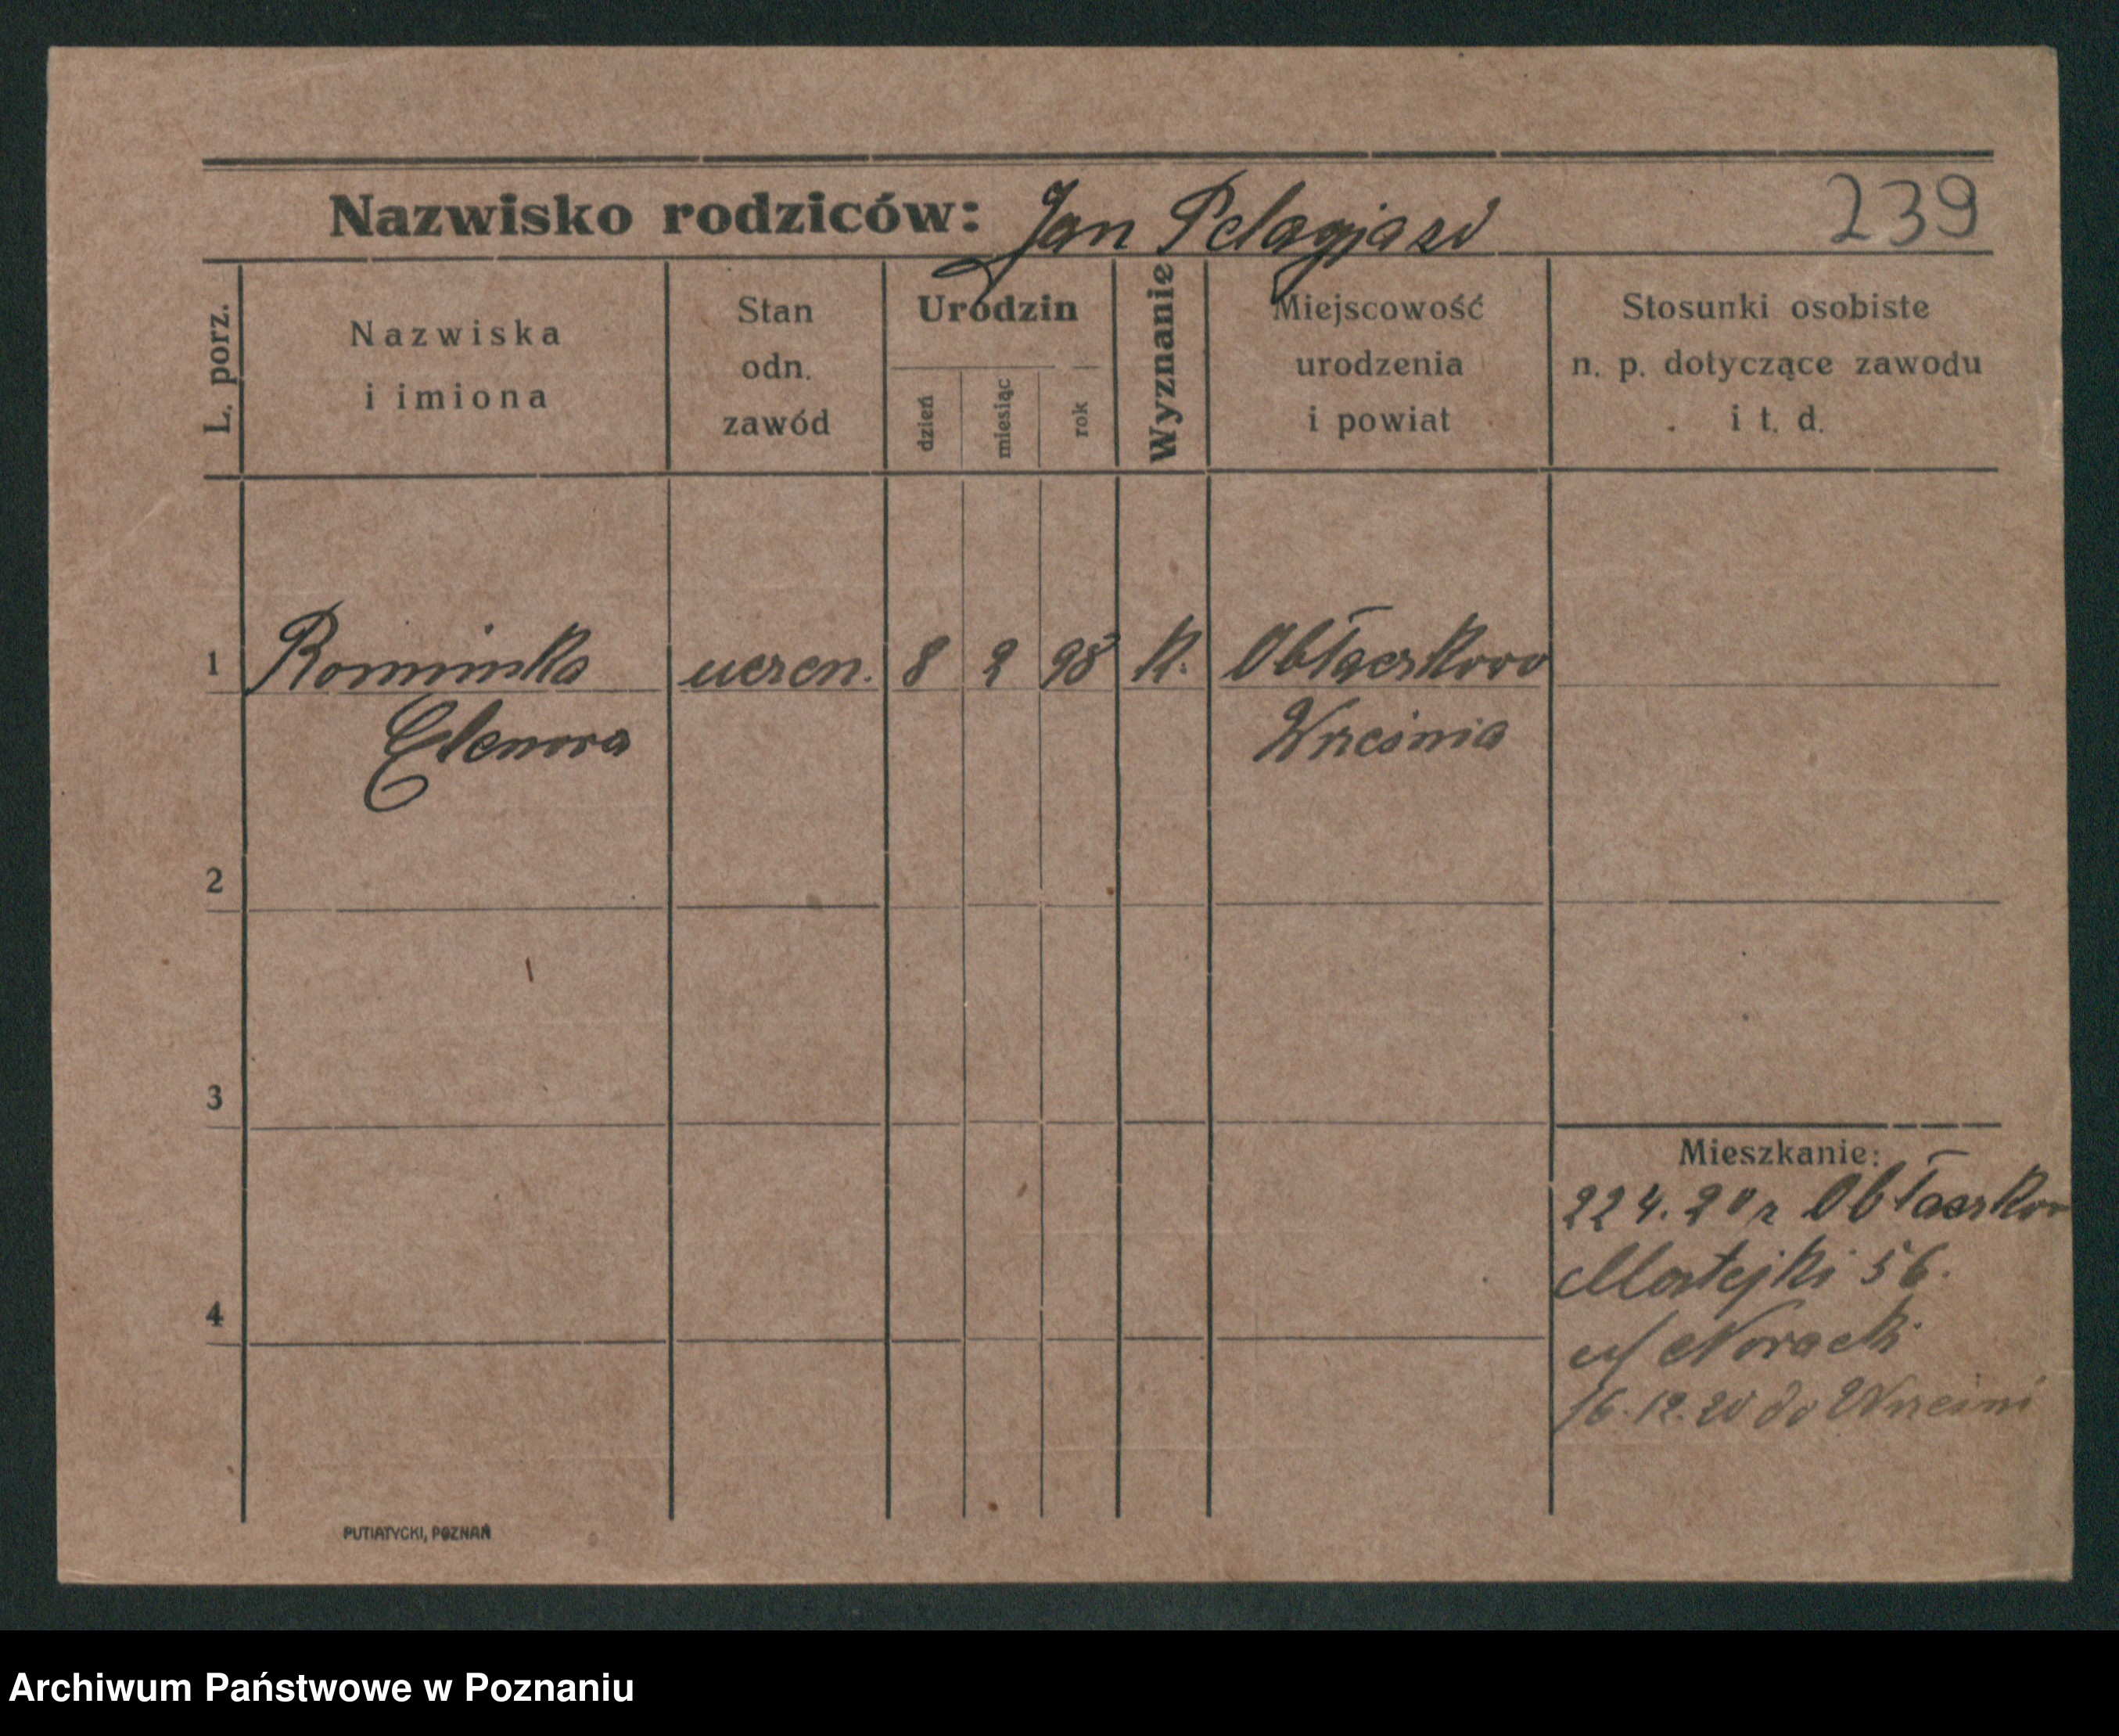 Nazwisko rodziców: Jan Pelagja 239
L. porz.
Nazwiska
i imiona
Stan
odn.
zawód
Urodzin
dzień
miesiąc
rok
Wyznanie
Miejscowość
urodzenia
i powiat
Stosunki osobiste
n. p. dotyczące zawodu
i t. d.
1 Romińska uczen. 8 2 98 k. Obłaczkowo
Elenora Września
2
3
4
Mieszkanie:
22 4. 20 z Obłaczkow
Matejki 56.
u/ Noracki
16.12.20 do Wrześni
PUTIATYCKI, POZNAŃ
Archiwum Państwowe w Poznaniu